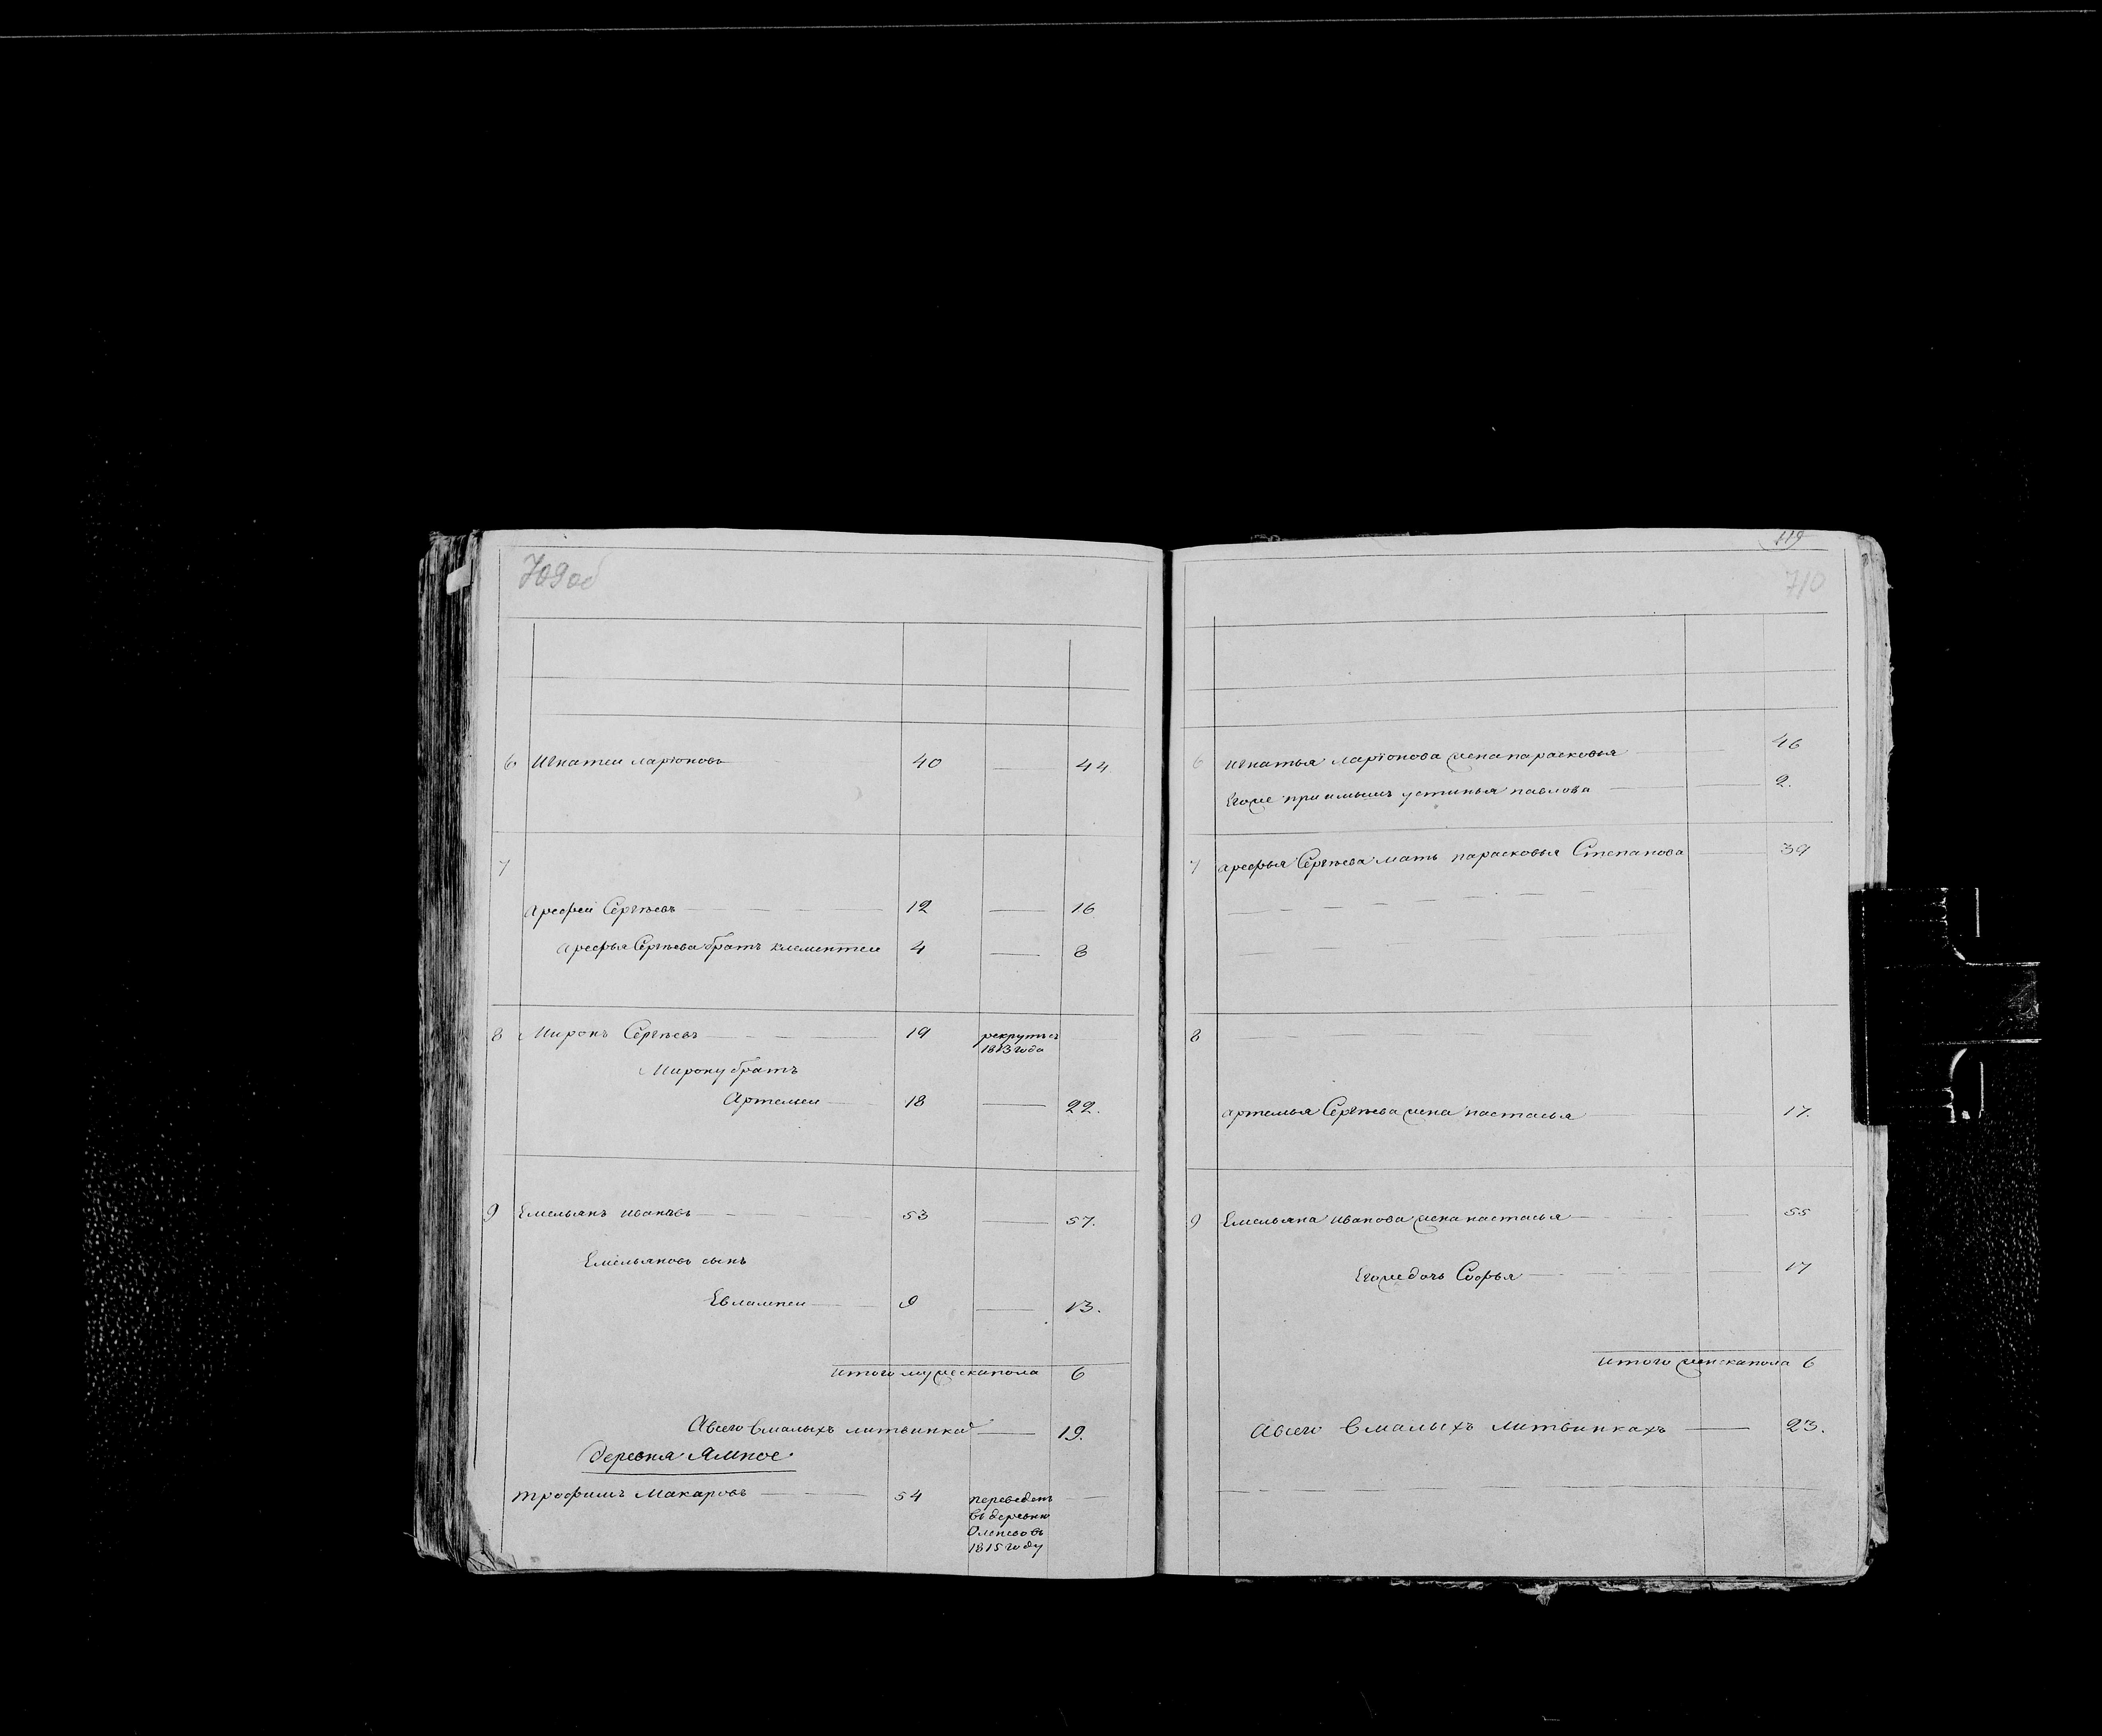 709об
6 Игнатеи ларионовъ 40 44
7
Арефеи Сергѣевъ 12 16
Арефья Сергѣева братъ клементеи 4 8
8 Миронъ Сергѣевъ 19 рекрутъ съ
1813 года
Мирону братъ
Артемеи 18 22.
9 Емельянъ ивановъ 53 57.
Емельяновъ сынъ
Евлампеи 9 13.
итого мужескапола 6
Авсего вмалыхъ литвинка 19.
деревня Ямное
трофимъ Макаровъ 54 переведенъ
въ деревню
Оленево въ
1815 году
119
710
6 Игнатья Ларионова жена парасковья 46
Егоже приимышъ устинья павлова 2.
7 Арефья Сергѣева мать парасковья Степанова 39
8
Артемья Сергѣева жена настасья 17.
9 Емельяна Иванова жена настасья 55
Егоже дочь Софья 17
итого женскапола 6
Авсего вмалыхъ литвинкахъ 23.